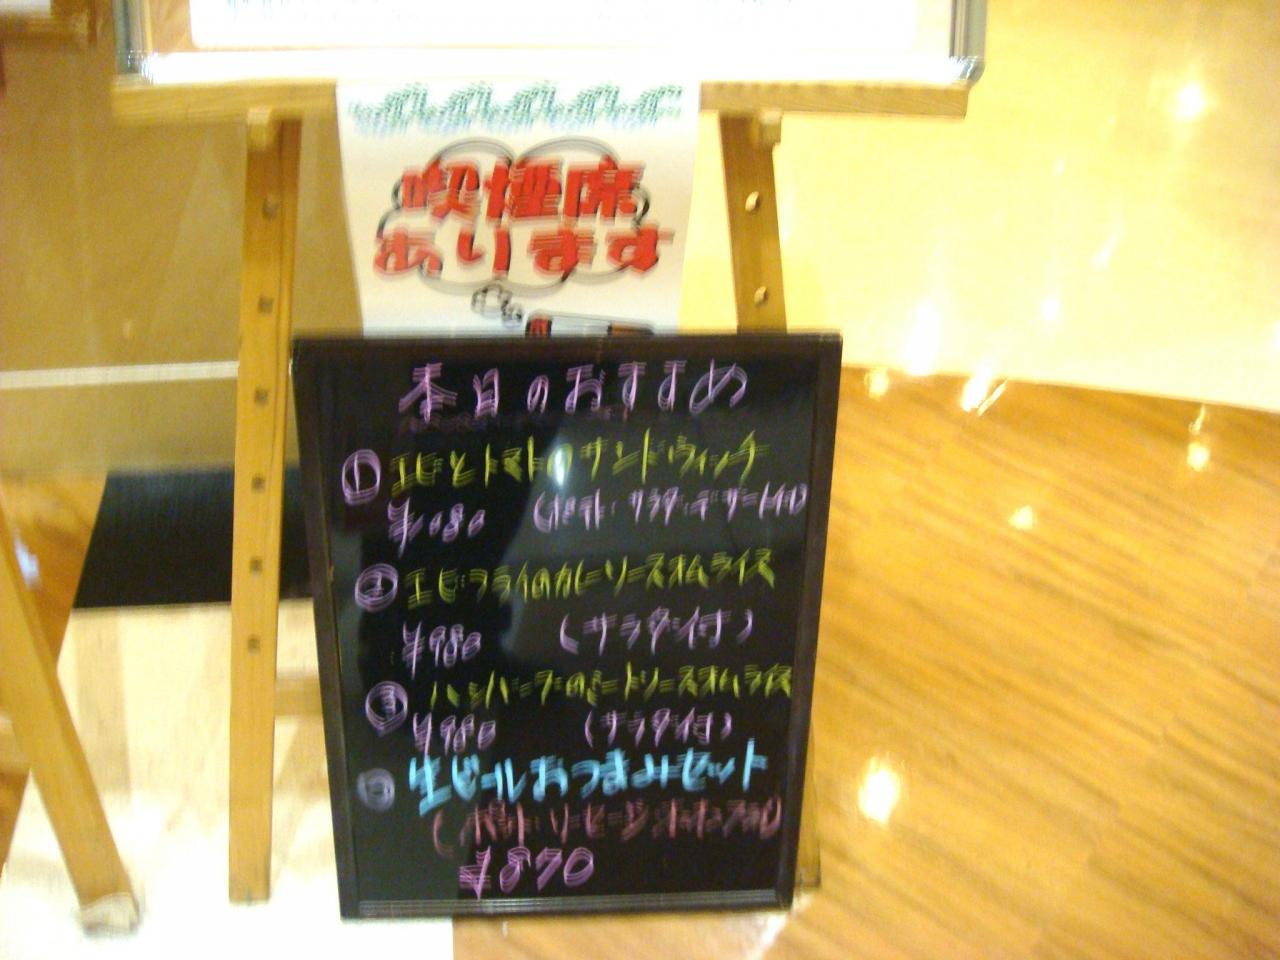 喫煙席
あります
本日のおすすめ
① エビとトマトのサンドウィッチ
¥1080 (ポテト・サラダ・デザート付)
② エビフライのカレーソースオムライス
¥980 (サラダ付)
③ ハンバーグのミートソースオムライス
¥980 (サラダ付)
生ビールおつまみセット
¥870